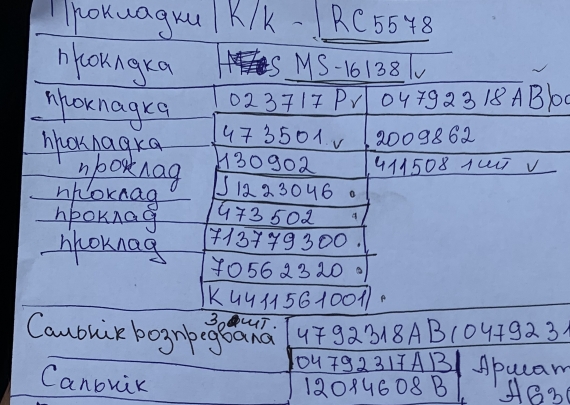 Прокладки К/к - RC5578
прокладка MS-16138 v
прокладка 023717 P v 04792318AB
прокладка 473501 v 2009862
проклад 130902 411508 1 шт v
проклад J1223046
проклад 473502
проклад 713779300
70562320
K4411561001
3 шт.
Сальнік розпредвала 4792318AB(0479231
04792317AB Армат
Сальнік 12014608B A63